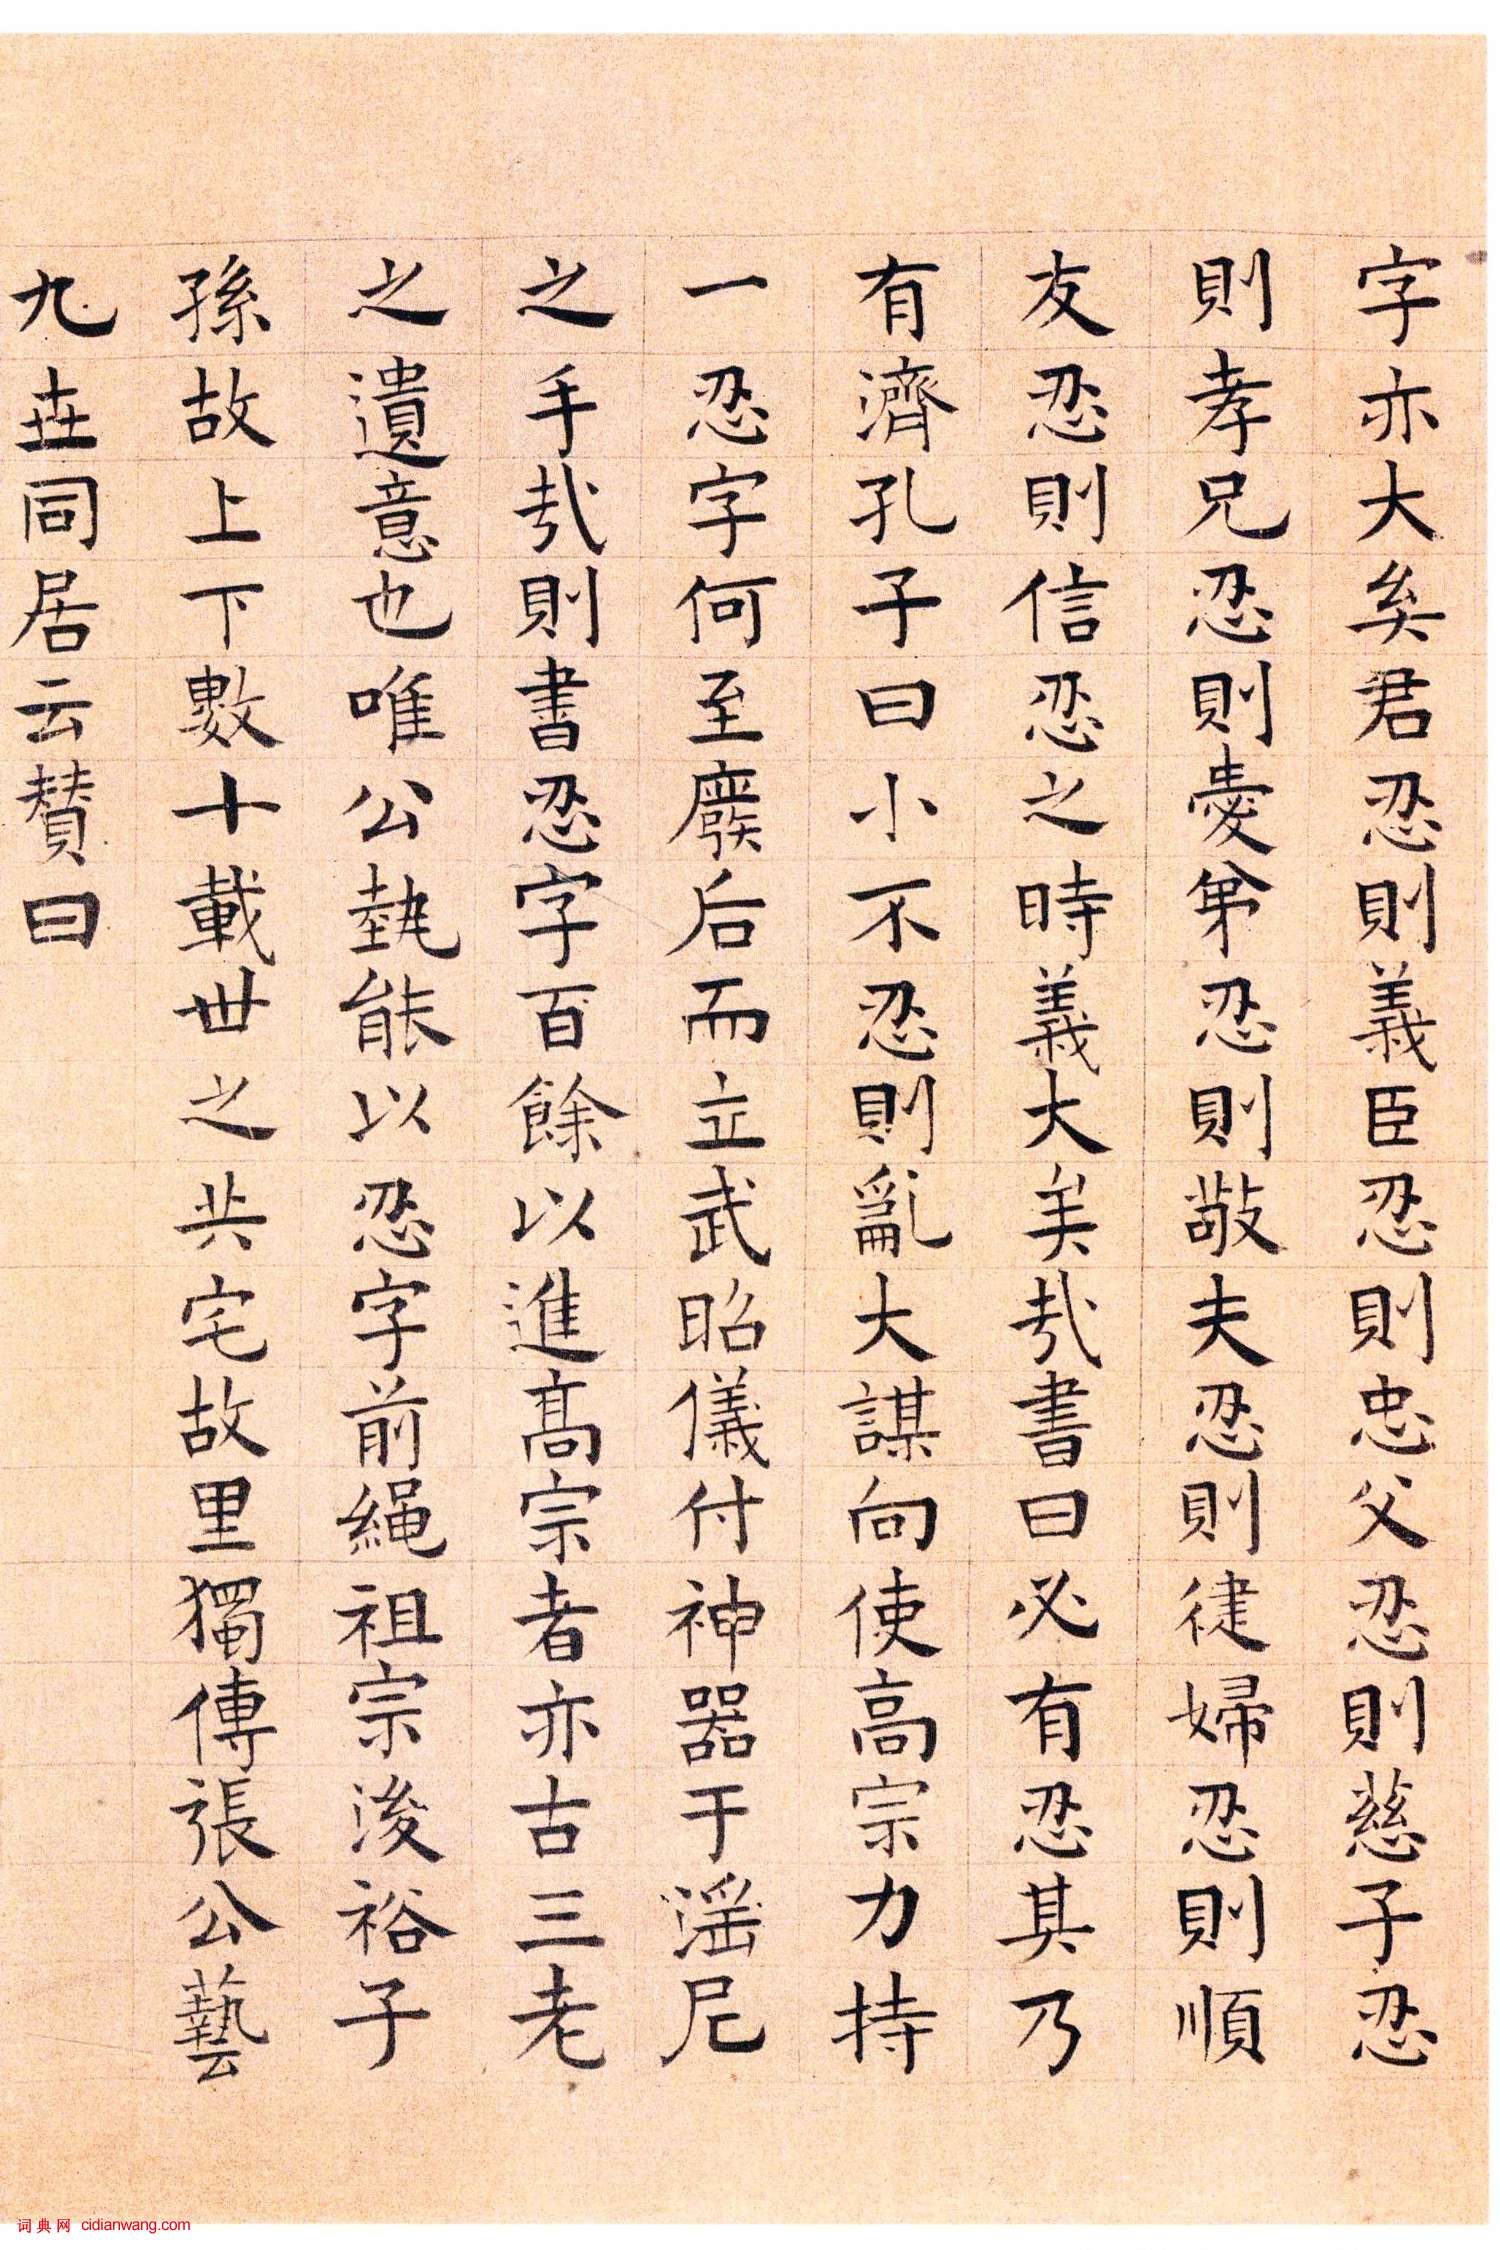 字亦大矣君忍則義臣忍則忠父忍則慈子忍
則孝兄忍則愛弟忍則敬夫忍則徤婦忍則順
友忍則信忍之時義大矣哉書曰必有忍其乃
有濟孔子曰小不忍則亂大謀向使高宗力持
一忍字何至廢后而立武昭儀付神器于滛尼
之手哉則書忍字百餘以進髙宗者亦古三老
之遺意也唯公埶能以忍字前繩祖宗浚裕子
孫故上下數十載丗之共宅故里獨傳張公藝
九世同居云賛曰
词典网 cidianwang.com